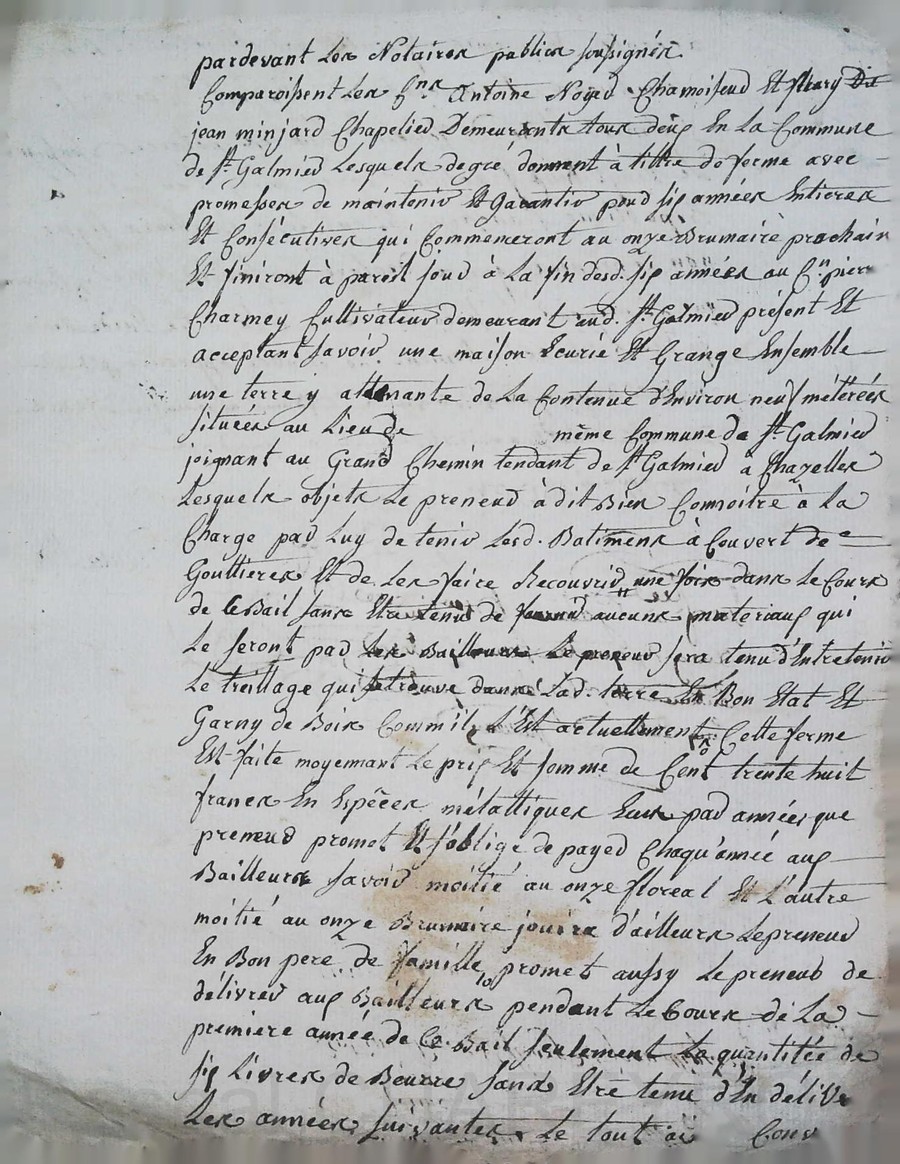 pardevant Les Notaires publics soussignés
Comparoissent Les Cns Antoine Noyer Chamoiseur Et fleury Dit
jean minjard Chapelier Demeurants tous deux En La Commune
de St. Galmier Lesquels de gré donnent à tittre de ferme avec
promesses de maintenir Et Garantir pour six années Entieres
Et Consécutives qui Commenceront au onze Brumaire prochain
Et finiront à pareil jour à La fin desd. six années au Cn. pierre
Charmey Cultivateur demeurant aud. St. Galmier présent Et
acceptant savoir une maison Ecurie Et Grange Ensemble
une terre y attenante de La Contenue d'Environ neuf métérées
situées au Lieu de même Commune de St. Galmier
joignant au Grand Chemin tendant de St Galmier a Chazelles
Lesquels objets Le preneur à dit Bien Connoitre à La
Charge par Luy de tenir Lesd. Batimens à Couvert de
Gouttieres Et de Les faire Recouvrir une fois dans Le Cours
de Ce Bail sans Etre tenu de fournir aucuns materiaux qui
Le seront par Les Bailleurs Le preneur sera tenu d'Entretenir
Le treillage qui se trouve dans Lad. terre En Bon Etat Et
Garny de Bois Comme il L'Est actuellement. Cette ferme
Est faite moyennant Le prix Et somme de Cent trente huit
francs En Espêces métalliques par années que
preneur promet Et s'oblige de payer Chaqu'année aux
Bailleurs savoir moitié au onze floreal Et L'autre
moitié au onze Brumaire jouira d'ailleurs Le preneur
En Bon pere de famille, promet aussy Le preneur de
délivrer aux Bailleurs pendant Le Cours de La
premiere année de Ce Bail seulement La quantitée de
six Livres de Beurre sans Etre tenu d'En délivr
Les années suivantes Le tout